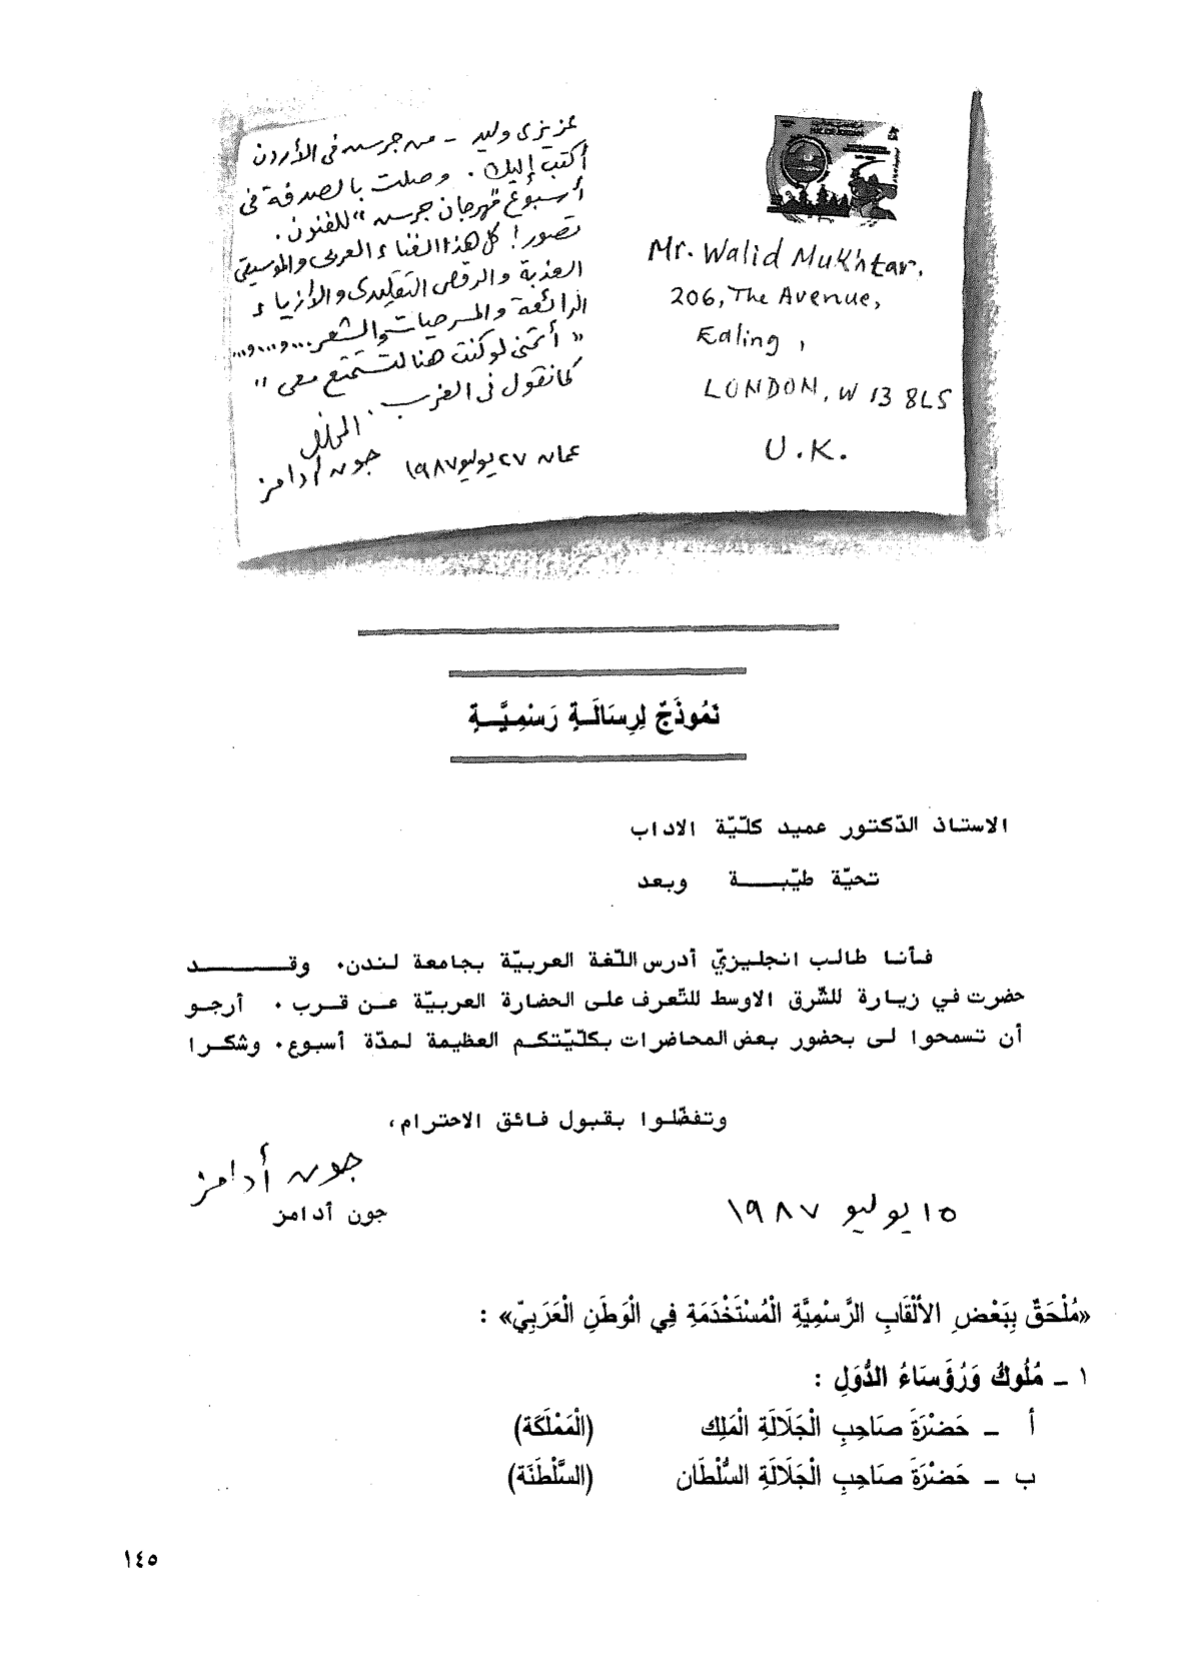 عزيزى وليد - من جرسه فى الأردن
أكتب إليك. وصلت بالصدفة فى
أسبوع "مهرجان جرسه" للفنون.
تصور! كل هذا الغناء العربى والموسيقى
العذبة والرقص التقليدى والأزياء
الرائعة والمسرحيات والشعر...و...و...
"أتمنى لو كنت هنا لتستمتع معى"
كما نقول فى الغرب. المخلص
جون أدامز
عمان ٢٧ يوليو ١٩٨٧
Mr. Walid Mukhtar,
206, The Avenue,
Ealing,
LONDON, W 13 8LS
U.K.
نَمُوذَجٌ لِرِسَالَـةٍ رَسْمِيَّـةٍ
الاستاذ الدّكتور عميد كلّيّة الاداب
تحيّة طيّبـــة وبعد
فأنا طالب انجليزيّ أدرس اللّغة العربيّة بجامعة لندن. وقـــــد
حضرت في زيارة للشّرق الاوسط للتّعرف على الحضارة العربيّة عن قرب . أرجو
أن تسمحوا لى بحضور بعض المحاضرات بكلّيّتكم العظيمة لمدّة أسبوع. وشكرا
وتفضّلوا بقبول فائق الاحترام،
جون أدامز
جون أدامز
١٥ يوليو ١٩٨٧
«مُلْحَقٌ بِبَعْضِ الأَلْقَابِ الرَّسْمِيَّةِ الْمُسْتَخْدَمَةِ فِي الْوَطَنِ الْعَرَبِيّ» :
١ - مُلُوكُ وَرُؤَسَاءُ الدُّوَلِ :
أ - حَضْرَةَ صَاحِبِ الْجَلَالَةِ الْمَلِك (الْمَمْلَكَة)
ب - حَضْرَةَ صَاحِبِ الْجَلَالَةِ السُّلْطَان (السَّلْطَنَة)
١٤٥